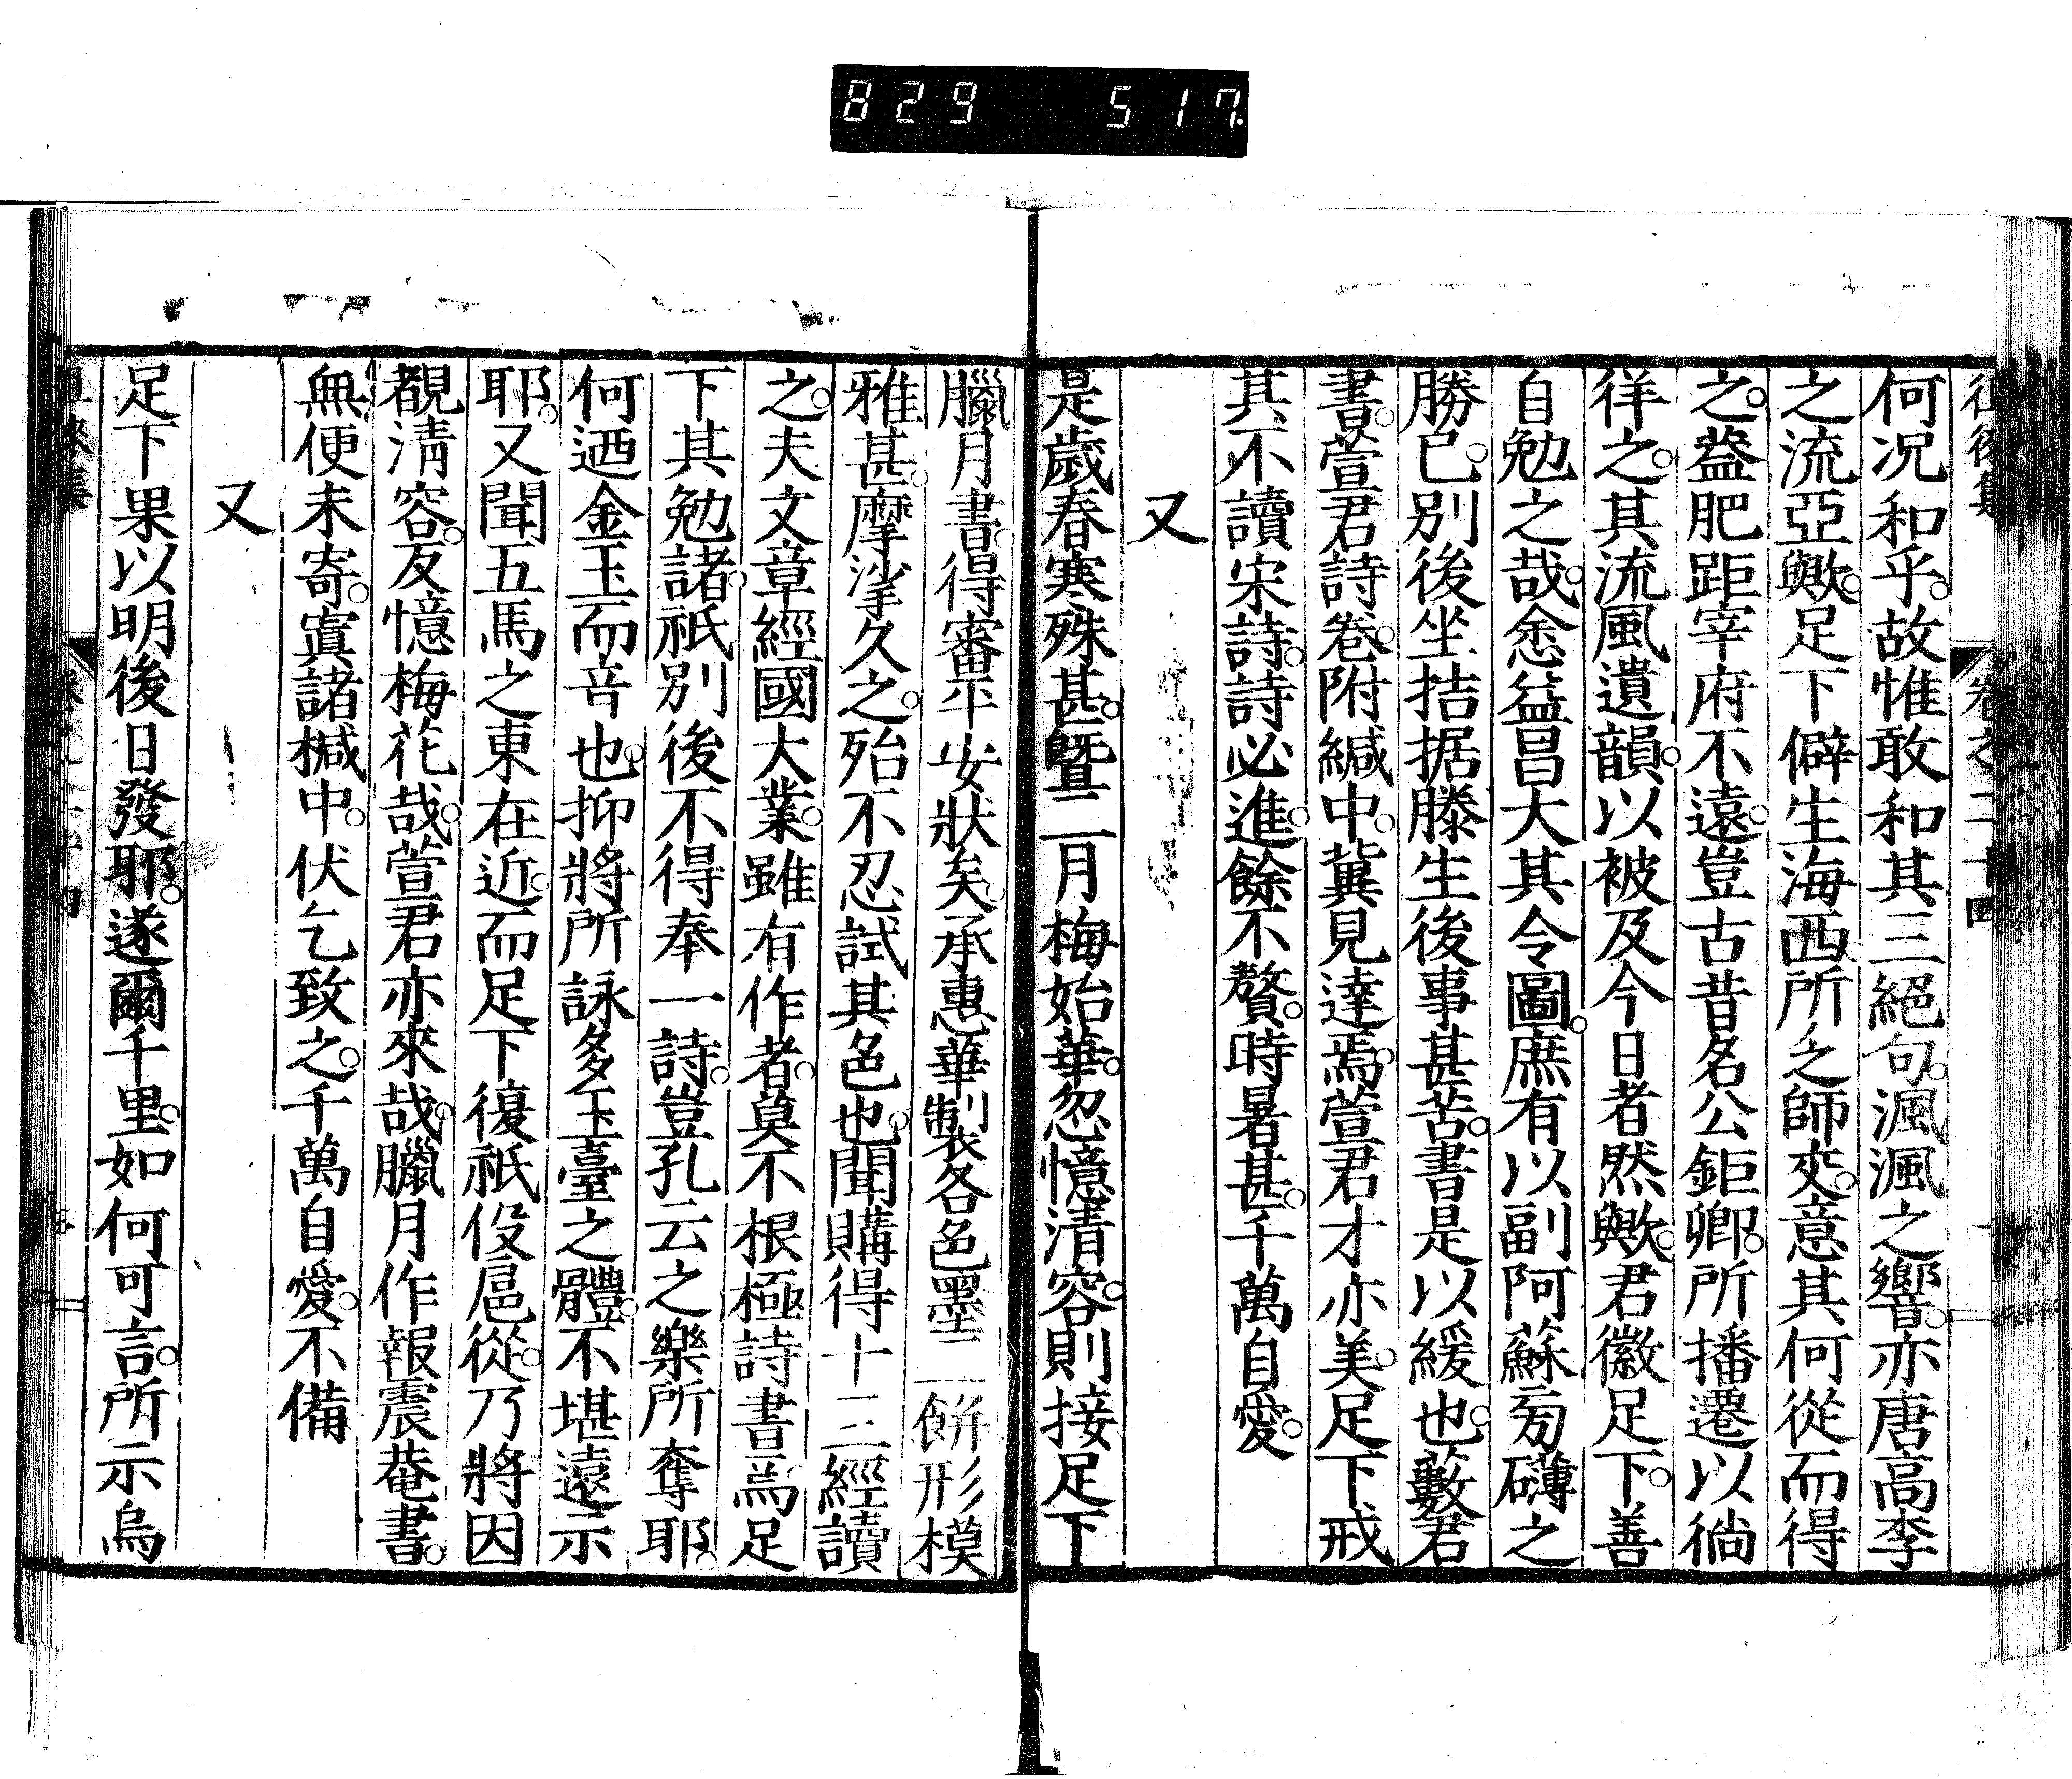 829 517
何況和乎。故惟敢和其三絕句。渢渢之響。亦唐高李
之流亞歟。足下僻生海西所之師交。意其何從而得
之。蓋肥距宰府不遠。豈古昔名公鉅卿。所播遷以徜
徉之。其流風遺韻。以被及今日者然歟。君徽足下。善
自勉之哉。悆益昌大其令圖。庶有以副阿蘇旁礴之
勝已。別後坐拮据滕生後事甚苦。書是以緩也。藪君
書。萱君詩卷。附緘中。冀見達焉。萱君才亦美。足下戒
其不讀宋詩。詩必進。餘不贅。時暑甚。千萬自愛。
又
是歲春寒殊甚。曁二月梅始華。忽憶清容。則接足下
臘月書。得審平安狀矣。承惠華製各色墨二餅形模
雅甚。摩挲久之。殆不忍試其色也。聞購得十三經讀
之。夫文章經國大業。雖有作者。莫不根極詩書焉足
下其勉諸。祇別後不得奉一詩。豈孔云之樂所奪耶。
何迺金玉而音也。抑將所詠多玉臺之體。不堪遠示
耶。又聞五馬之東在近。而足下復祇役扈從。乃將因
覩淸容。反憶梅花哉。萱君亦來哉。臘月作報震菴書。
無便未寄。寘諸椷中。伏乞致之。千萬自愛。不備
又
足下果以明後日發耶。遂爾千里。如何可言。所示烏